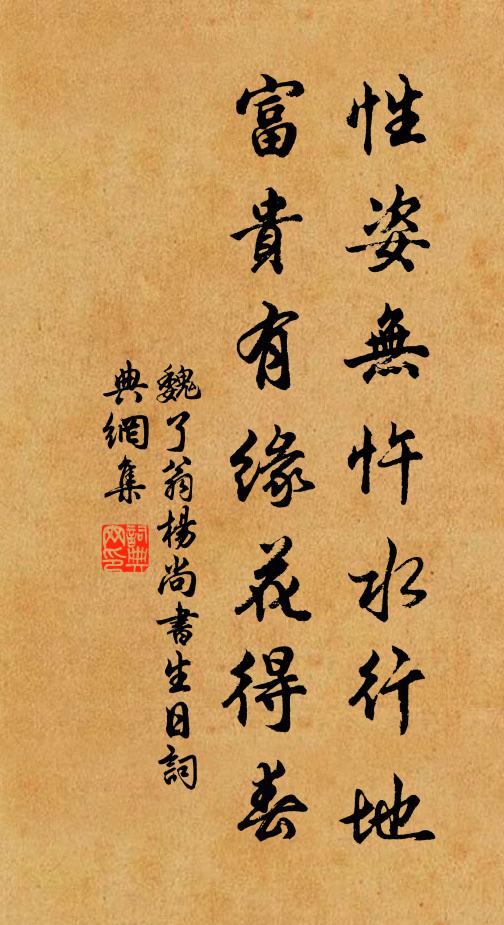 性姿無忤水行地
富貴有緣花得春
魏了翁楊尚書生日詞
典網集
詞典
网印